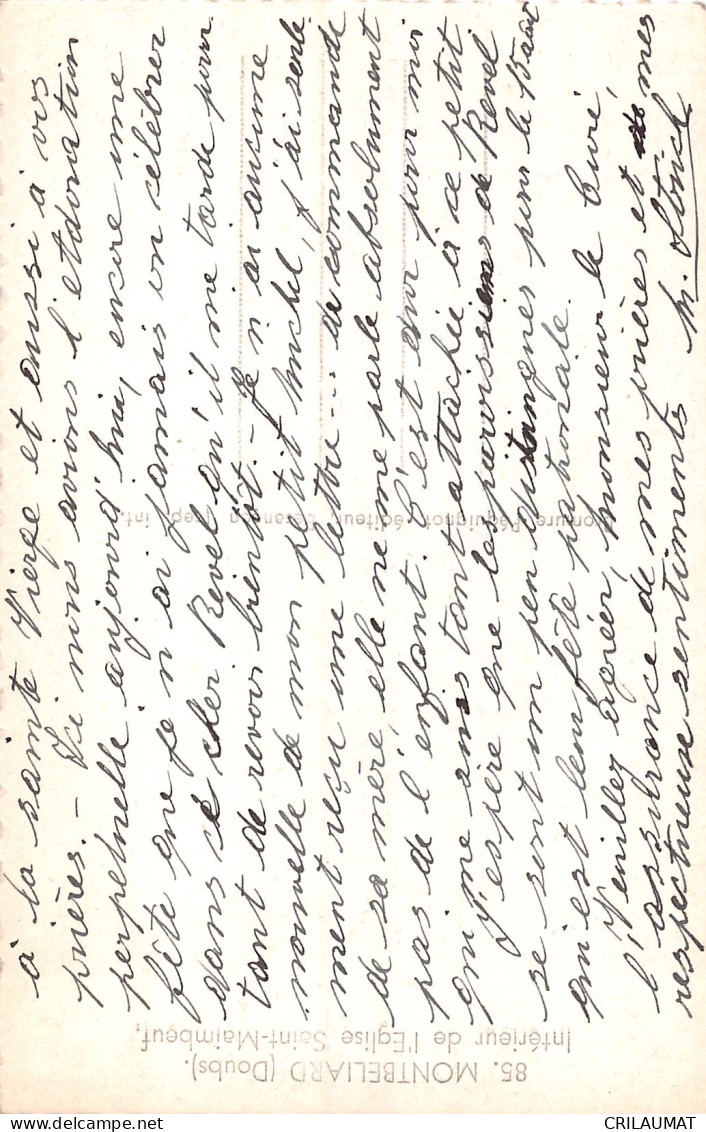 à la sainte Vierge et aussi à vos
prières. - Ici nous avions l'Adoration
perpétuelle aujourd'hui, encore une
fête que je n'ai jamais vu célébrer
dans ce cher Revel qu'il me tarde pour
tant de revoir bientôt. - Je n'ai aucune
nouvelle de mon petit Michel, j'ai seule
ment reçu une lettre... de commande
de sa mère, elle ne me parle absolument
pas de l'enfant. C'est dur pour moi
qui me suis tant attachée à ce petit
J'espère que les paroissiens de Revel
se sont un peu distingués pour le 15 août
qui est leur fête patronale.
Veuillez agréer, monsieur le Curé,
l'assurance de mes prières et mes
respectueux sentiments M.
85. MONTBELIARD (Doubs).
Intérieur de l'Eglise Saint-Maimbœuf.
Péquignot, éditeur, Besançon Dep. int.
CRILAUMAT